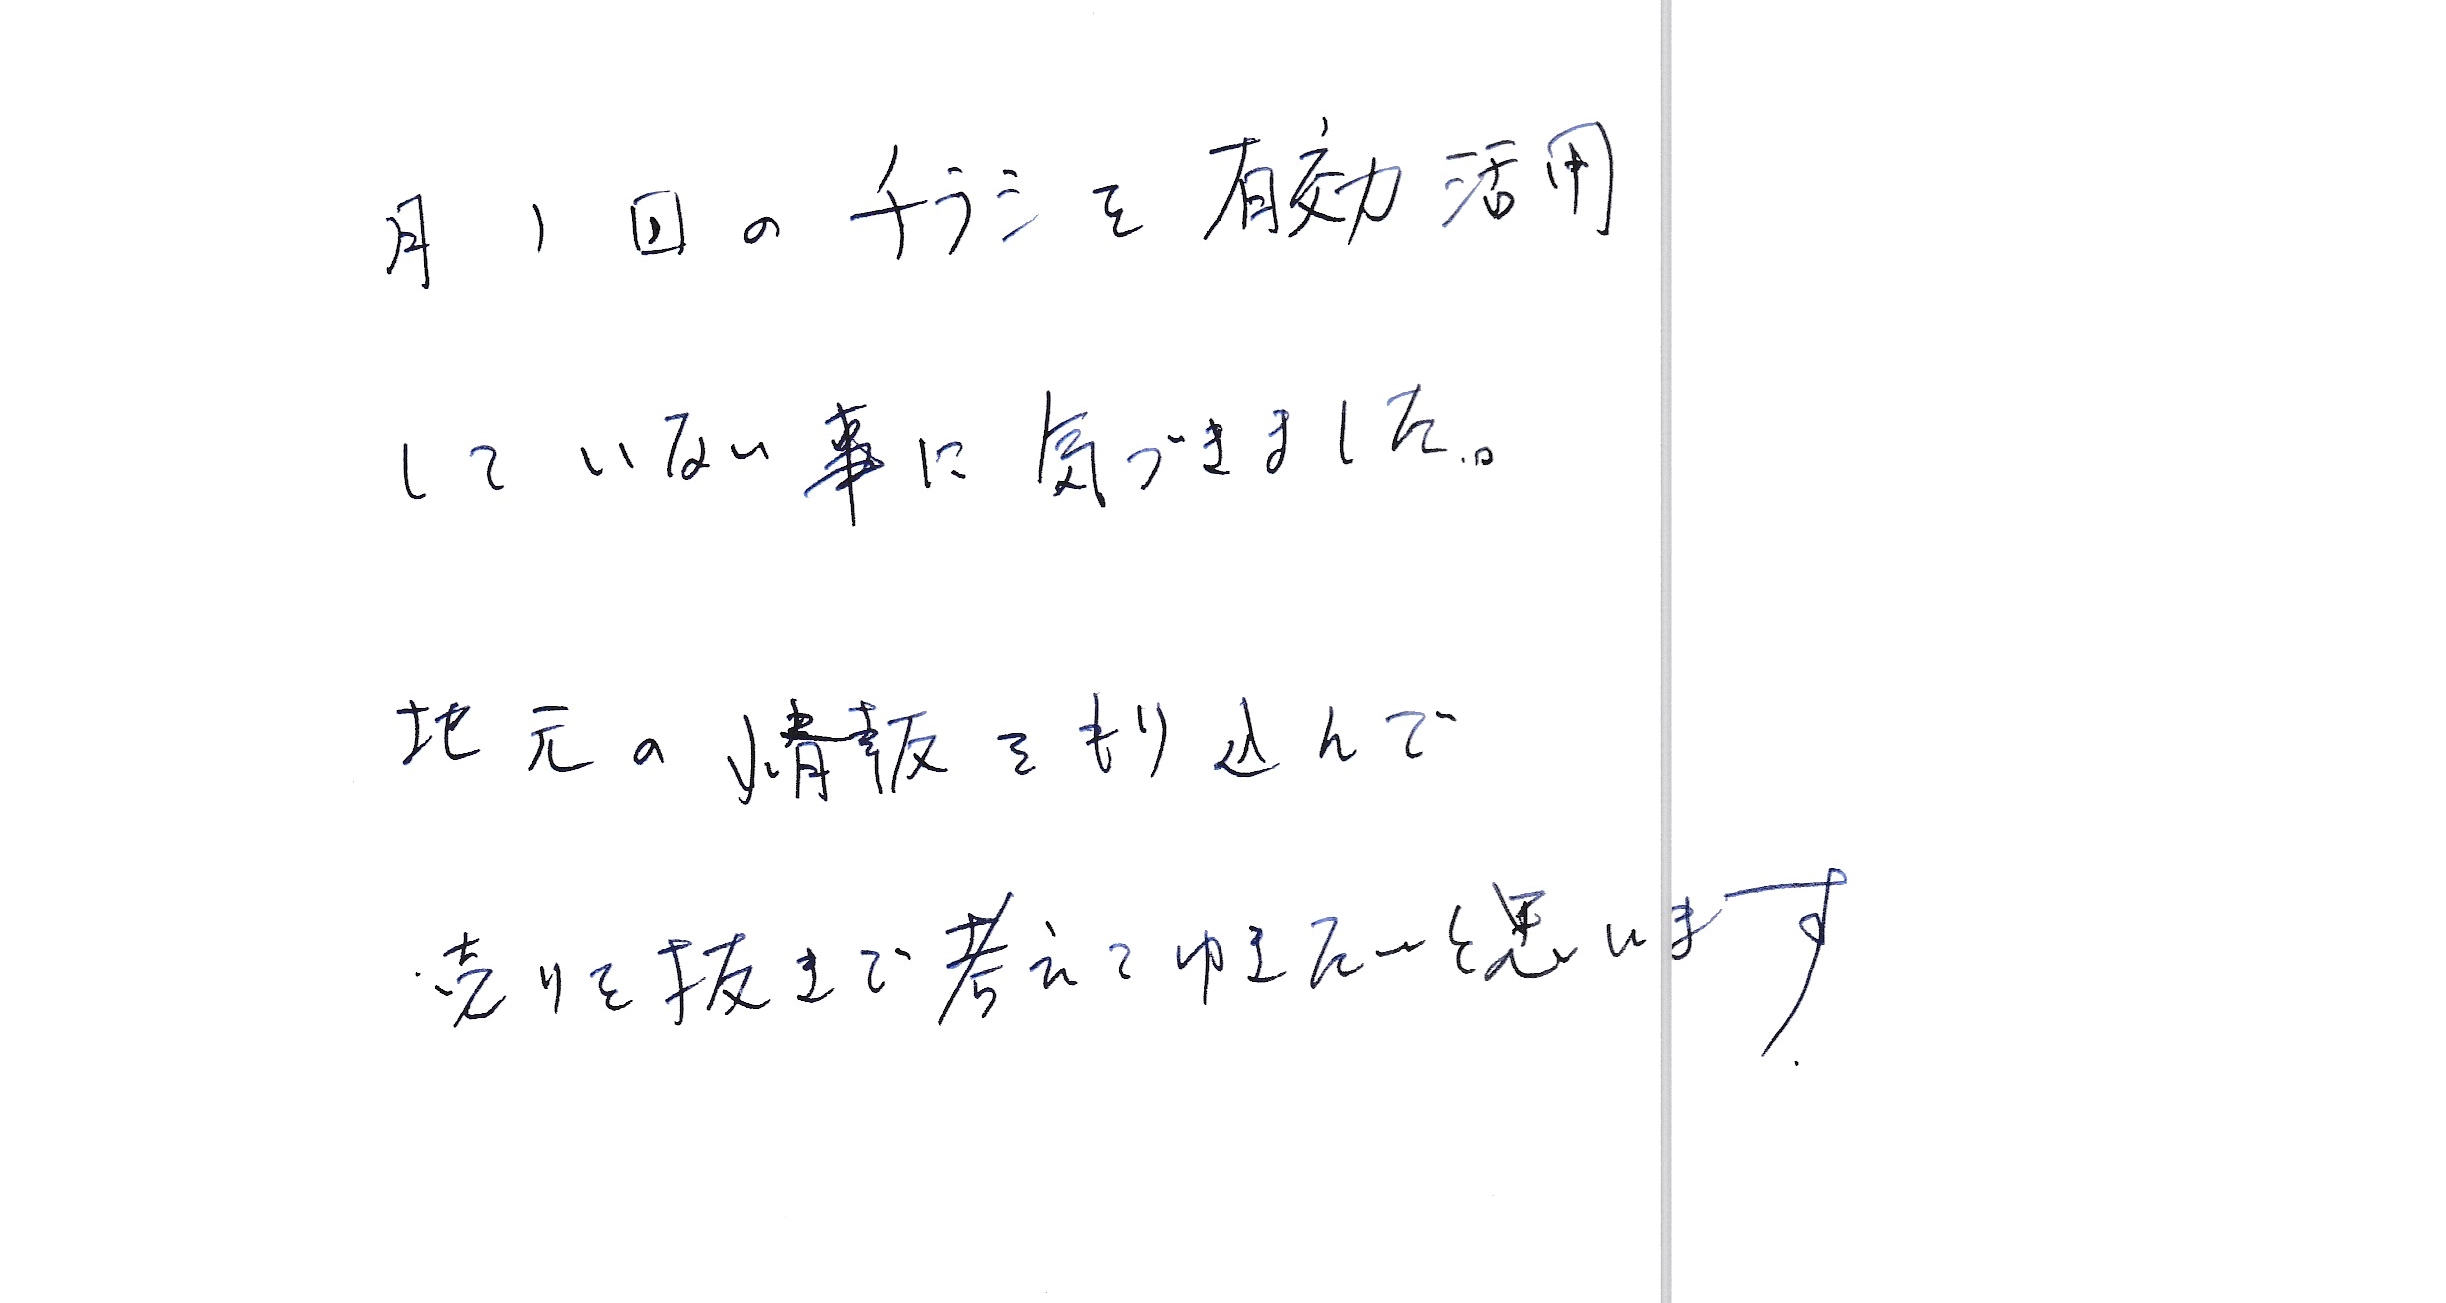 月1回のチラシを有効活用
していない事に気づきました。
地元の情報をもり込んで
売りを抜きで考えてゆきたいと思います